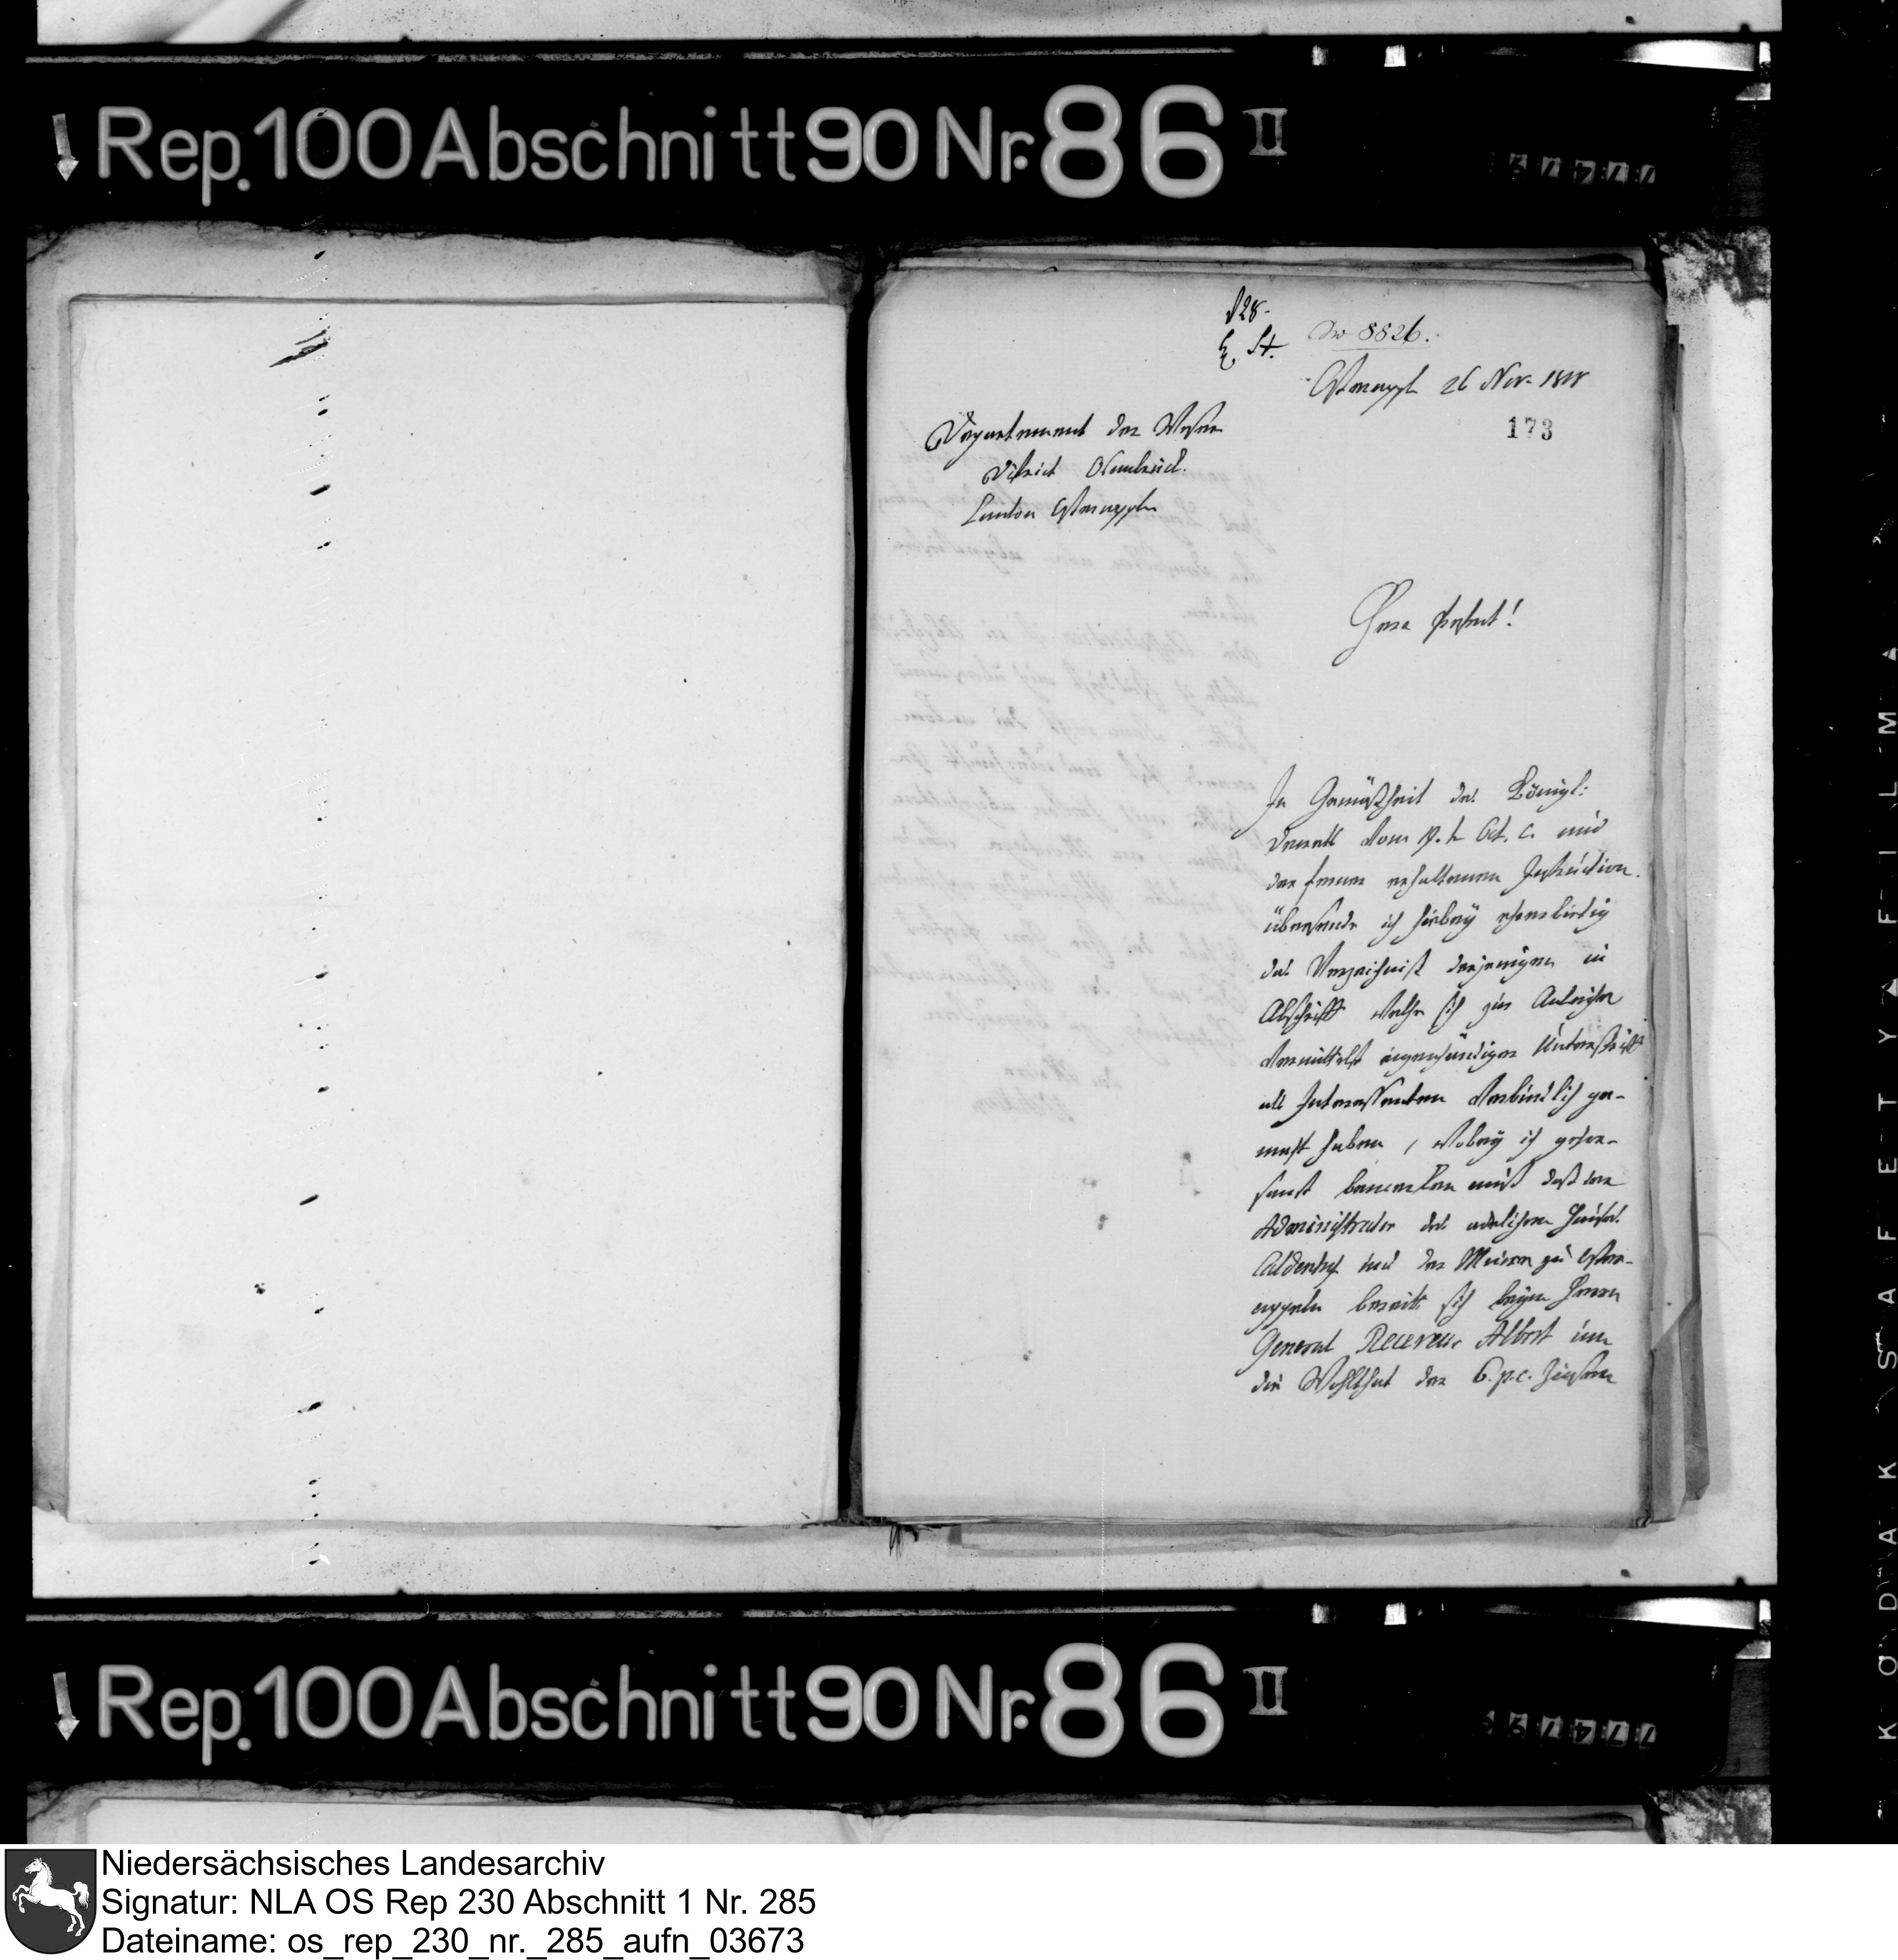 Rep. 100 Abschnitt 90 Nr. 86 II
No 8826.
Ostercappeln 26 Nov. 1808
173
Departement der Weser
District Osnabrück.
Canton Ostercappeln
Herr Präfect!
In Gemäßheit des Königl:
Decrets vom 19. t. Oct. c. und
der ferner erhaltenen Instruction.
übersende ich hierbey ehrerbietig
das Verzeichniß derjenigen in
Abschrift welche sich zur Anleihe
vermittelst eigenhändiger Unterschrift
als Interessenten verbindlich ge-
macht haben, wobey ich gehor-
samst bemerken muß daß der
Administrator des adelichen Hauses
Caldenhof und der Maire zu Oster-
cappeln bereits sich beym Herrn
General Receveur Albert um
die Wohlthat der 6. p.c. Zinsen
Rep. 100 Abschnitt 90 Nr. 86 II
KODAK SAFETY FILM
Niedersächsisches Landesarchiv
Signatur: NLA OS Rep 230 Abschnitt 1 Nr. 285
Dateiname: os_rep_230_nr._285_aufn_03673